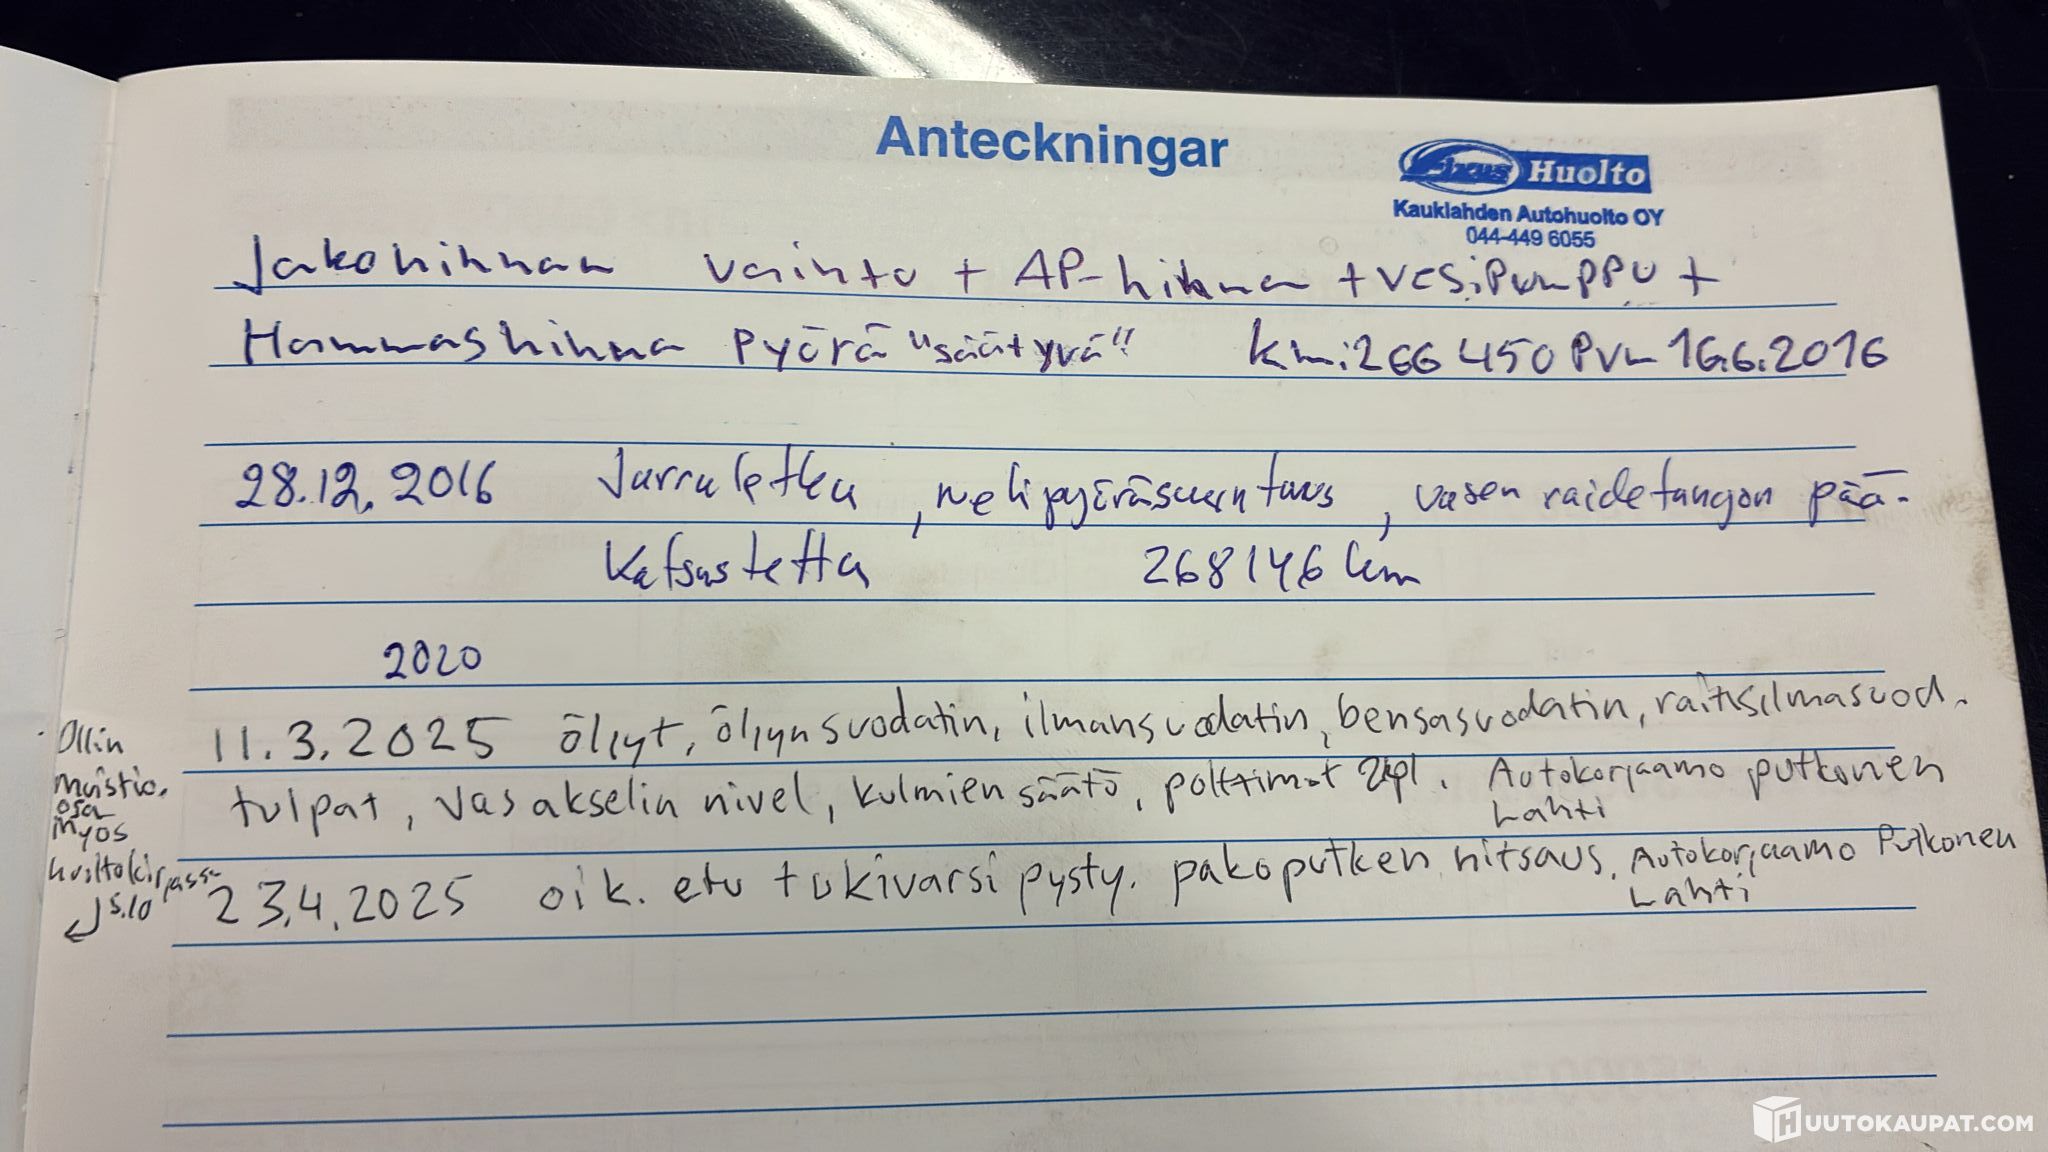 Anteckningar
Huolto
Kauklahden Autohuolto OY
044-449 6055
Jakohihnan vaihto + AP-hihna + vesipumppu +
Hammashihna pyörä "säätyvä" km:266 450 Pvm 16.6.2016
28.12.2016 Jarruletku, nelipyöräsuuntaus, vasen raidetangon pää.
Katsastettu 268146 km
2020
11.3.2025 öljyt, öljynsuodatin, ilmansuodatin, bensasuodatin, raitisilmasuod.
tulpat, vas akselin nivel, kulmien säätö, polttimot 2kpl. Autokorjaamo putkonen
Lahti
23.4.2025 oik. etu tukivarsi pysty. pakoputken hitsaus. Autokorjaamo Putkonen
Lahti
Ollin
muistio.
osa
myös
huoltokirjassa
s.10
HUUTOKAUPAT.COM